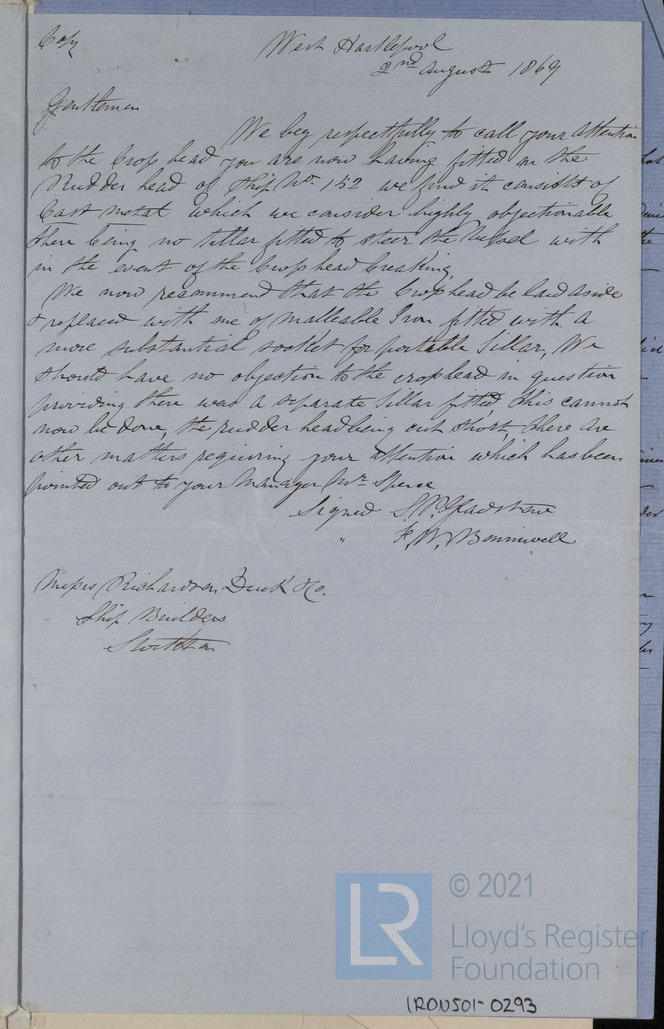 Copy
West Hartlepool
2nd August 1869
Gentlemen
We beg respectfully to call your attention
to the Crop head you are now having fitted on the
Rudder head of Ship No. 152 we find it consists of
Cast metal which we consider highly objectionable
there being no tillar fitted to steer the Vessel with
in the event of the Crop head breaking,
We now recommend that the Crophead be laid aside
& replaced with one of malleable Iron fitted with a
more substantial socket for portable Tillar, We
should have no objection to the crophead in question
providing there was a separate Tillar fitted, this cannot
now be done, the rudder head being cut short, there are
other matters requiring your attention which has been
pointed out to your Manager Mr. Spence
Signed S.P. Gladstone
" F.W. Bonniwell
Messrs Richardson Duck & Co.
Ship Builders
Stockton
© 2021
LR
Lloyd's Register
Foundation
IRON501-0293